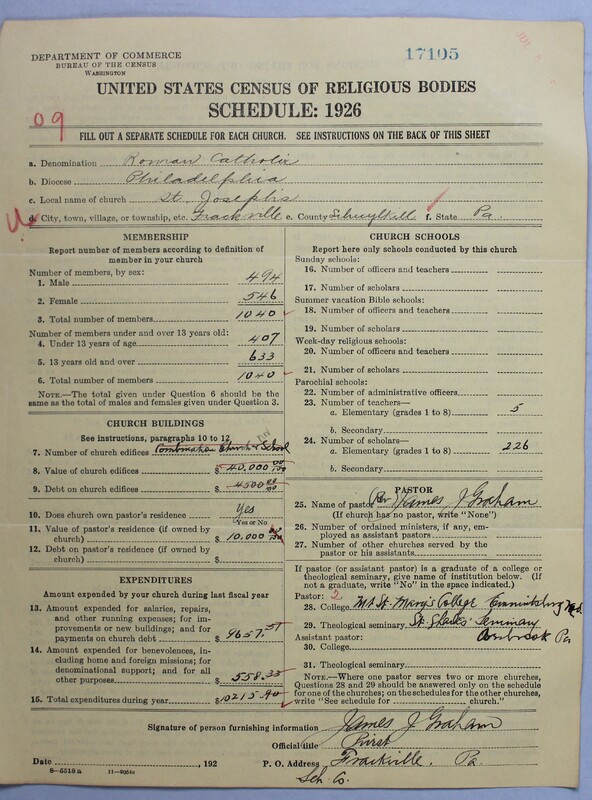 DEPARTMENT OF COMMERCE
BUREAU OF THE CENSUS
WASHINGTON
17105
UNITED STATES CENSUS OF RELIGIOUS BODIES
SCHEDULE: 1926
09
FILL OUT A SEPARATE SCHEDULE FOR EACH CHURCH. SEE INSTRUCTIONS ON THE BACK OF THIS SHEET
a. Denomination Roman Catholic
b. Diocese Philadelphia
c. Local name of church St. Joseph's
d. City, town, village, or township, etc. Frackville e. County Schuylkill f. State Pa.
MEMBERSHIP
Report number of members according to definition of member in your church
Number of members, by sex:
1. Male 494
2. Female 546
3. Total number of members 1040
Number of members under and over 13 years old:
4. Under 13 years of age 407
5. 13 years old and over 633
6. Total number of members 1040
NOTE.—The total given under Question 6 should be the
same as the total of males and females given under Question 3.
CHURCH BUILDINGS
See instructions, paragraphs 10 to 12
7. Number of church edifices Combination Church & School
8. Value of church edifices $ 40,000 00/100
9. Debt on church edifices $ 4500 00/00
10. Does church own pastor's residence? Yes
Yes or No
11. Value of pastor's residence (if owned by
church) $ 10,000 00/100
12. Debt on pastor's residence (if owned by
church) $
EXPENDITURES
Amount expended by your church during last fiscal year
13. Amount expended for salaries, repairs,
and other running expenses; for im-
provements or new buildings; and for
payments on church debt $ 9657.57
14. Amount expended for benevolences, in-
cluding home and foreign missions; for
denominational support; and for all
other purposes $ 558.33
15. Total expenditures during year $ 10215.90
CHURCH SCHOOLS
Report here only schools conducted by this church
Sunday schools:
16. Number of officers and teachers
17. Number of scholars
Summer vacation Bible schools:
18. Number of officers and teachers
19. Number of scholars
Week-day religious schools:
20. Number of officers and teachers
21. Number of scholars
Parochial schools:
22. Number of administrative officers
23. Number of teachers—
a. Elementary (grades 1 to 8) 5
b. Secondary
24. Number of scholars—
a. Elementary (grades 1 to 8) 226
b. Secondary
PASTOR
25. Name of pastor Rev James J Graham
(If church has no pastor, write "None")
26. Number of ordained ministers, if any, em-
ployed as assistant pastors
27. Number of other churches served by the
pastor or his assistants
If pastor (or assistant pastor) is a graduate of a college or
theological seminary, give name of institution below. (If
not a graduate, write "No" in the space indicated.)
Pastor: 2
28. College Mt St. Mary's College Emmitsburg Md.
29. Theological seminary St. Charles' Seminary
Overbrook Pa
Assistant pastor:
30. College
31. Theological seminary
NOTE.—Where one pastor serves two or more churches,
Questions 28 and 29 should be answered only on the schedule
for one of the churches; on the schedules for the other churches,
write "See schedule for church."
Signature of person furnishing information James J Graham
Official title Priest
Date , 192 P. O. Address Frackville, Pa.
8—5518a
Sch. Co.